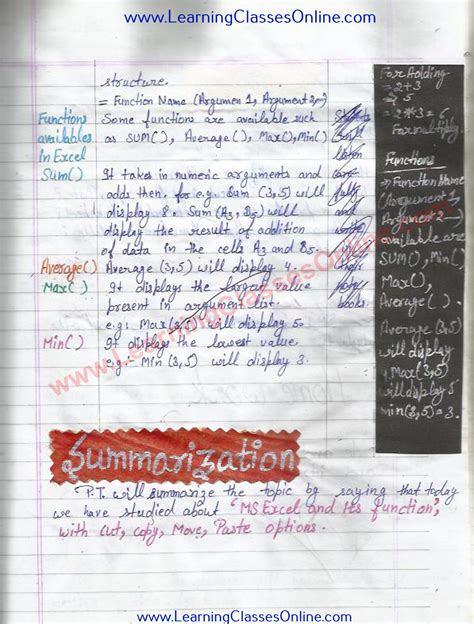 www.LearningClassesOnline.com
structure.
= Function Name (Argumen 1, Argument 2,...)
Functions available in Excel
Some functions are available such
as SUM(), Average(), Max(), Min()
Sum()
It takes in numeric arguments and
adds then. for e.g. Sum (3,5) will
display 8. Sum (A3, B5) will
display the result of addition
of data in the cells A3 and B5.
Average()
Average (3,5) will display 4.
Max()
It displays the largest value
present in argument list.
e.g: Max(3,5) will display 5.
Min()
It displays the lowest value.
e.g:- Min (3,5) will display 3.
Students
will
listen
and
write
in their
books.
For Adding
= 2+3
= 5
= 2*3 = 6
For multiply.
Functions
= Function Name
(Argument 1,
Argument 2
available are
SUM(), Min()
Max(),
Average()
Average (3,5)
will display
4 Max(3,5)
will display 5
min(3,5) = 3.
www.LearningClassesOnline.com
Summarization
P.T. will summarize the topic by saying that today
we have studied about 'MS Excel and its function',
with Cut, Copy, Move, Paste options.
www.LearningClassesOnline.com